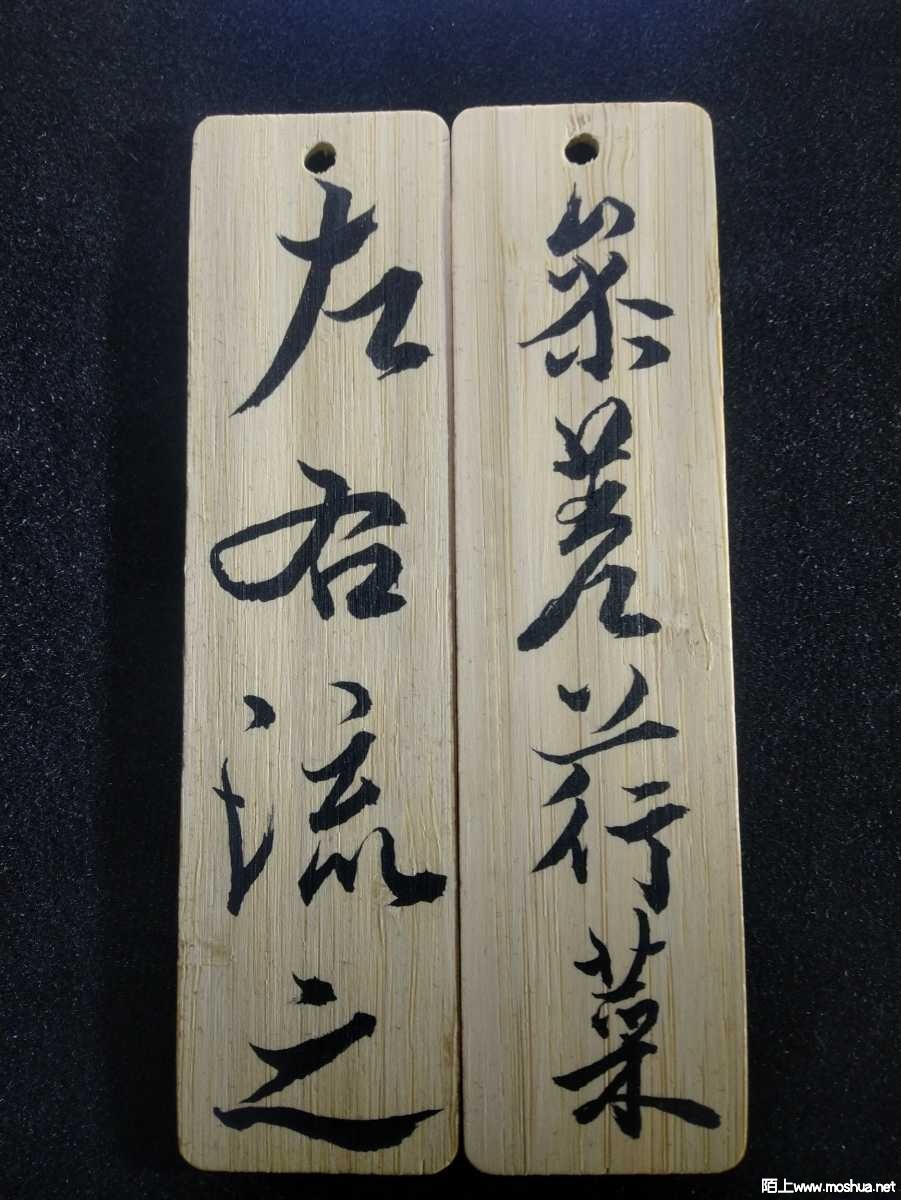 参差荇菜
左右流之
陌上www.moshua.net